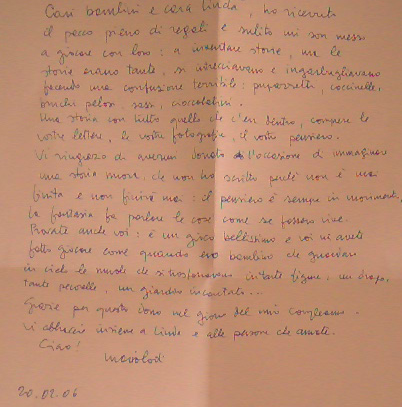 Cari bambini e cara Linda, ho ricevuto
il pacco pieno di regali e subito mi son messo
a giocare con loro: a inventare storie, ma le
storie erano tante, si intrecciavano e ingarbugliavano
facendo una confusione terribile: pupazzetti, coccinelle,
bruchi pelosi, sassi, cioccolatini.
Una storia con tutto quello che c'era dentro, comprese le
vostre lettere, le vostre fotografie, il vostro pensiero.
Vi ringrazio di avermi donato l'occasione di immaginare
una storia nuova, che non ho scritto perché non è mai
finita e non finirà mai: il pensiero è sempre in movimento.
La fantasia fa parlare le cose come se fossero vive.
Provate anche voi: è un gioco bellissimo e voi mi avete
fatto giocare come quando ero bambino che guardavo
in cielo le nuvole che si trasformavano in tante figure: un drago,
tante pecorelle, un giardino incantato...
Grazie per questo dono nel giorno del mio compleanno.
Vi abbraccio insieme a Linda e alle persone che amate.
Ciao!
20.02.06